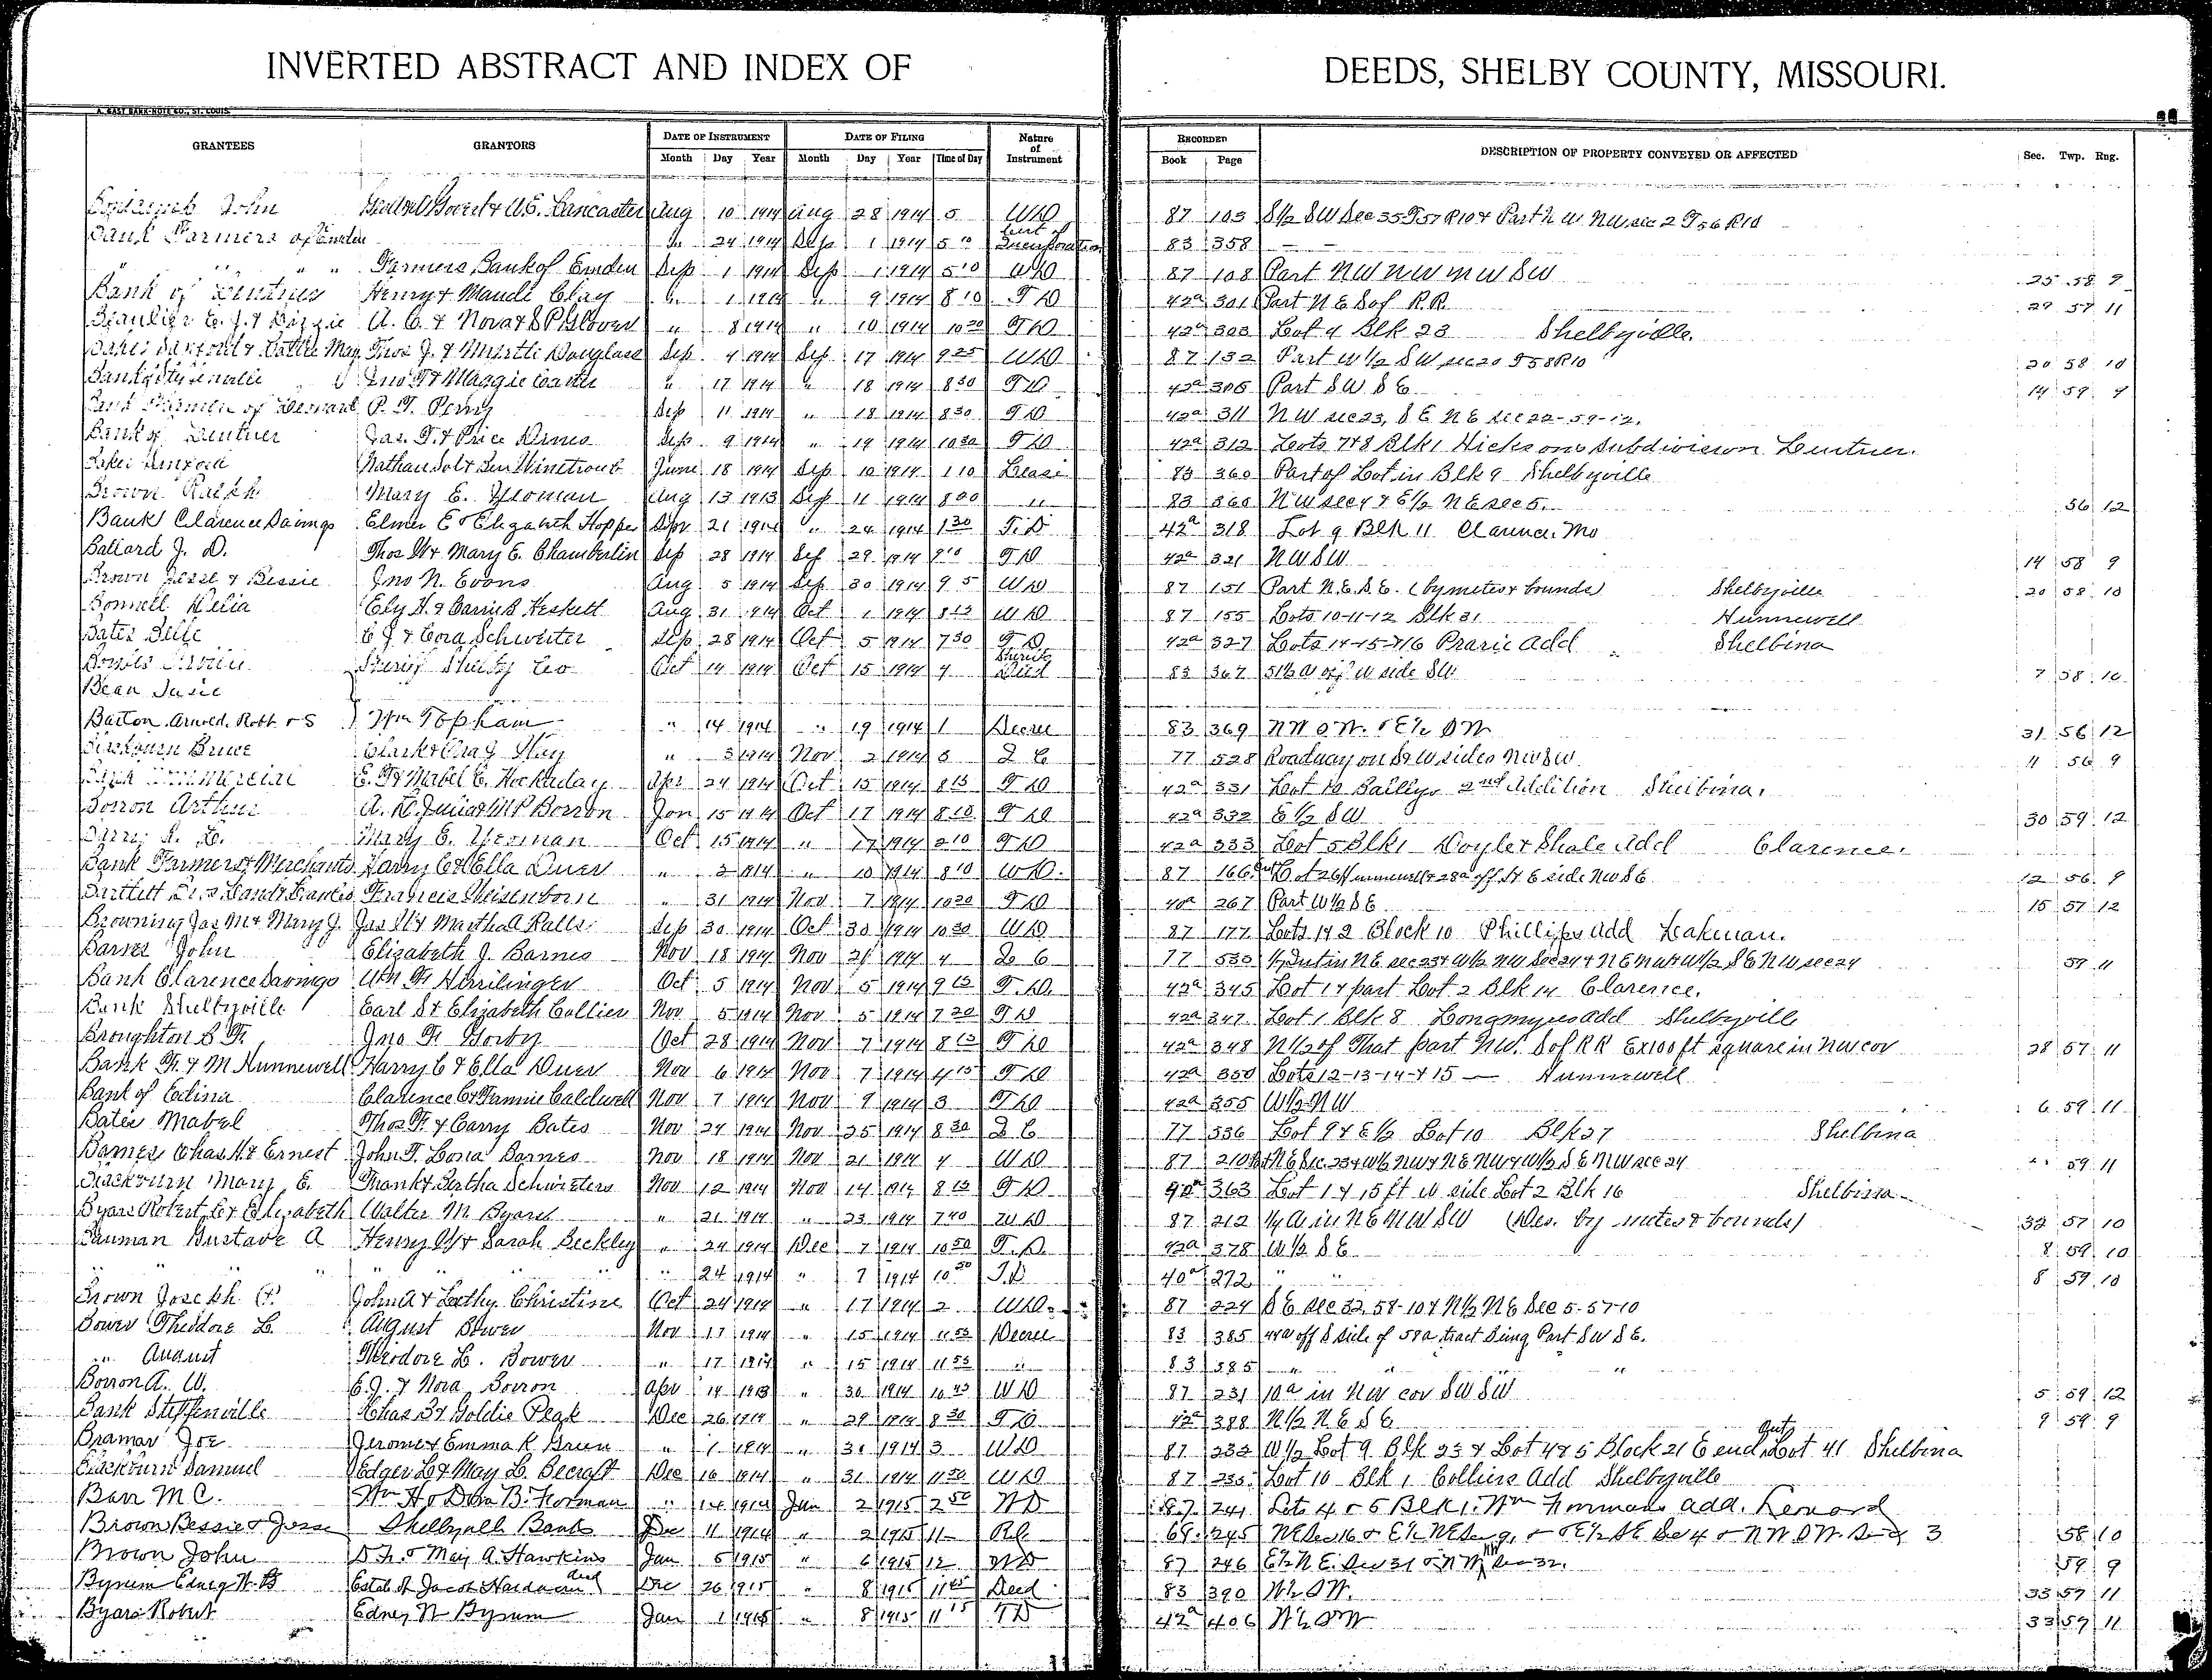 INVERTED ABSTRACT AND INDEX OF DEEDS, SHELBY COUNTY, MISSOURI.
A. GAST BANK-NOTE CO., ST. LOUIS.
GRANTEES GRANTORS DATE OF INSTRUMENT DATE OF FILING Nature of Instrument RECORDED DESCRIPTION OF PROPERTY CONVEYED OR AFFECTED Sec. Twp. Rng.
Month Day Year Month Day Year Time of Day Book Page
John Lancaster Aug 10 1914 Aug 28 1914 5 WD 87 103 S½ SW Sec 35 T57 R10 & Part NW sec 2 T56 R10
Bank Farmers of Emden 24 1914 Sep 1 1914 5 10 Cert of Incorporation 83 358
" " " Farmers Bank of Emden Sep 1 1914 Sep 1 1914 5 10 WD 87 108 Part NW NW NW SW 25 58 9
Bank of Lentner Henry & Maude Clay 1 1914 " 9 1914 8 10 TD 42a 301 Part NE S of R.R. 29 57 11
& Lizzie A. C. & Nova & S P Glover " 8 1914 " 10 1914 10 20 TD 42a 303 Lot 4 Blk 23 Shelbyville
Thos J. & Myrtle Douglass Sep 4 1914 Sep 17 1914 9 25 WD 87 132 Part W½ SW sec 20 T58 R10 20 58 10
Jno T & Maggie " 17 1914 " 18 1914 8 30 TD 42a 306 Part SW SE 14 59 9
Bank Farmers of Leonard P. T. Perry Sep 11 1914 " 18 1914 8 30 TD 42a 311 NW sec 23, SE NE sec 22-59-12.
Bank of Lentner Jas. T. & Price Dimes Sep 9 1914 " 19 1914 10 20 TD 42a 312 Lots 7 & 8 Blk 1 Hicksons Subdivision Lentner.
Nathan Sol & Ben Winetroub June 18 1914 Sep 10 1914 1 10 Lease 83 360 Part of Lot in Blk 9 Shelbyville
Brown Ralph Mary E. Yeoman Aug 13 1913 Sep 11 1914 8 00 " 83 360 NW sec 4 & E½ NE sec 5. 56 12
Bank Clarence Savings Elmer E & Elizabeth Hopper 21 1914 " 24 1914 1 30 T.D 42a 318 Lot 9 Blk 11 Clarence. Mo
Ballard J. D. Thos W & Mary E. Chamberlin Sep 28 1914 Sep 29 1914 9 10 TD 42a 321 NW SW 14 58 9
Brown Jesse & Bessie Jno N. Evans Aug 5 1914 Sep 30 1914 9 5 WD 87 151 Part N.E.S.E. (by metes & bounds) Shelbyville 20 58 10
Bonnell Delia Ely H. & Carrie B Heskett Aug 31 1914 Oct 1 1914 8 15 WD 87 155 Lots 10-11-12 Blk 31 Hunnewell
Bates Belle C J & Cora Schwieter Sep 28 1914 Oct 5 1914 7 30 TD 42a 327 Lots 14-15-&16 Prarie Add Shelbina
Sheriff Shelby Co Oct 14 1914 Oct 15 1914 4 Sheriffs Deed 83 367 51½ a off W side SW 7 58 10
Bean Susie
Barton Arnold, Robt & S Wm Topham " 14 1914 " 19 1914 1 Decree 83 369 NW SW. & E½ SW 31 56 12
Blackburn Bruce Clark & Ora J. Hay " 3 1914 Nov 2 1914 5 Q C 77 528 Roadway on S & W sides NW SW 11 56 9
Bank Commercial E. T & Mabel C. Hockaday Apr 24 1914 Oct 15 1914 8 15 TD 42a 331 Lot 10 Baillys 2nd Addition Shelbina.
Borron Arthur Borron Jan 15 1914 Oct 17 1914 8 10 TD 42a 332 E½ SW 30 59 12
Mary E. Yeoman Oct 15 1914 " 17 1914 2 10 TD 42a 333 Lot 5 Blk 1 Doyle & Shale Add Clarence.
Bank Farmers & Merchants Harry C & Ella Duer " 2 1914 " 10 1914 8 10 WD. 87 166 Lot 26 Hunnewell & 28a off E side NW SE 12 56 9
Francis Weisenborn " 31 1914 Nov 7 1914 10 20 TD 40a 267 Part W½ SE 15 57 12
Browning Jas M & Mary J. Jas W & Martha A Ralls Sep 30 1914 Oct 30 1914 10 30 WD 87 177 Lots 1 & 2 Block 10 Phillips Add Lakenan.
Barnes John Elizabeth J. Barnes Nov 18 1914 Nov 21 1914 4 Q C 77 530 Int in NE sec 23 & W½ NW Sec 24 & NE NW & W½ SE NW sec 24 59 11
Bank Clarence Savings Wm F. Herrlinger Oct 5 1914 Nov 5 1914 9 15 T.D. 42a 345 Lot 1 & part Lot 2 Blk 14 Clarence.
Bank Shelbyville Earl S & Elizabeth Collier Nov 5 1914 Nov 5 1914 7 20 TD 42a 347 Lot 1 Blk 8 Longmyers Add Shelbyville
Broughton B F. Jno F. Gorby Oct 28 1914 Nov 7 1914 8 15 TD 42a 348 N½ of That part NW. S of RR Ex 100 ft square in NW cor 28 57 11
Bank F. & M Hunnewell Harry C & Ella Duer Nov 6 1914 Nov 7 1914 4 15 TD 42a 350 Lots 12-13-14-&15 — Hunnewell
Bank of Edina Clarence C & Fannie Caldwell Nov 7 1914 Nov 9 1914 3 TD 42a 355 W½ NW 6 59 11
Bates Mabel Thos F. & Carry Bates Nov 24 1914 Nov 25 1914 8 30 Q C 77 536 Lot 9 & E½ Lot 10 Blk 37 Shelbina
Barnes Chas H. & Ernest John T. Lona Barnes Nov 18 1914 Nov 21 1914 4 WD 87 210 NE Sec. 23 & W½ NW & NE NW & W½ SE NW sec 24 59 11
Blackburn Mary E. Frank & Bertha Schwieters Nov 12 1914 Nov 14 1914 8 15 TD 363 Lot 1 & 15 ft W side Lot 2 Blk 16 Shelbina
Byars Robert L & Elizabeth Walter M Byars " 21 1914 " 23 1914 7 40 WD 87 212 ¼ a in NE NW SW (Des. by metes & bounds) 32 57 10
Bauman Gustave A Henry W & Sarah Beckley " 24 1914 Dec 7 1914 10 50 T.D. 42a 378 W½ SE 8 59 10
" " " " " " " 24 1914 " 7 1914 10 50 T.D 40a 272 " " 8 59 10
Brown Joseph John A & Christine Oct 24 1914 " 17 1914 2 WD. 87 224 SE Sec 32, 58-10 & N½ NE Sec 5-57-10
Bower Theodore L. August Bower Nov 17 1914 " 15 1914 11 55 Decree 83 385 44a off S side of 59a tract being Part SW SE.
" August Theodore L. Bower " 17 1914 " 15 1914 11 55 " 83 385 " " "
Borron A. W. E.J. & Nora Borron Apr 14 1913 " 30 1914 10 45 WD 87 231 10a in NW cor SW SW 5 59 12
Bank Steffenville Chas B & Goldie Peak Dec 26 1914 " 29 1914 8 30 TD 42a 388 N½ NE SE 9 59 9
Bramar Joe Jerome & Emma K Green " 1 1914 " 30 1914 3 WD 87 232 W½ Lot 9 Blk 23 & Lot 4 & 5 Block 21 E end Out Lot 41 Shelbina
Blackburn Samuel Edger L & May L. Becraft Dec 16 1914 " 31 1914 11 30 WD 87 235 Lot 10 Blk 1 Collins Add Shelbyville
Barr M C. Wm H & Dora B. Forman " 14 1914 Jan 2 1915 2 50 WD 87 241 Lots 4 & 5 Blk 1. Wm Formans add. Leonard
Brown Bessie & Jesse Shelbyville Bank Dec 11 1914 " 2 1915 11 Rel. 69 245 NE Sec 16 & E½ NE Sec 9, & E½ SE Sec 4 & NW SW Sec 3 58 10
Brown John D. F. & May A. Hawkins Jan 5 1915 " 6 1915 12 WD 87 246 E½ NE. Sec 31 & NW NW Sec 32. 59 9
Bynum Edney W. B Estate of Jacob Hardman decd Dec 26 1915 " 8 1915 11 45 Deed 83 390 W½ SW. 33 59 11
Byars Robert Edney W Bynum Jan 1 1915 " 8 1915 11 15 TD 42a 406 W½ SW 33 59 11